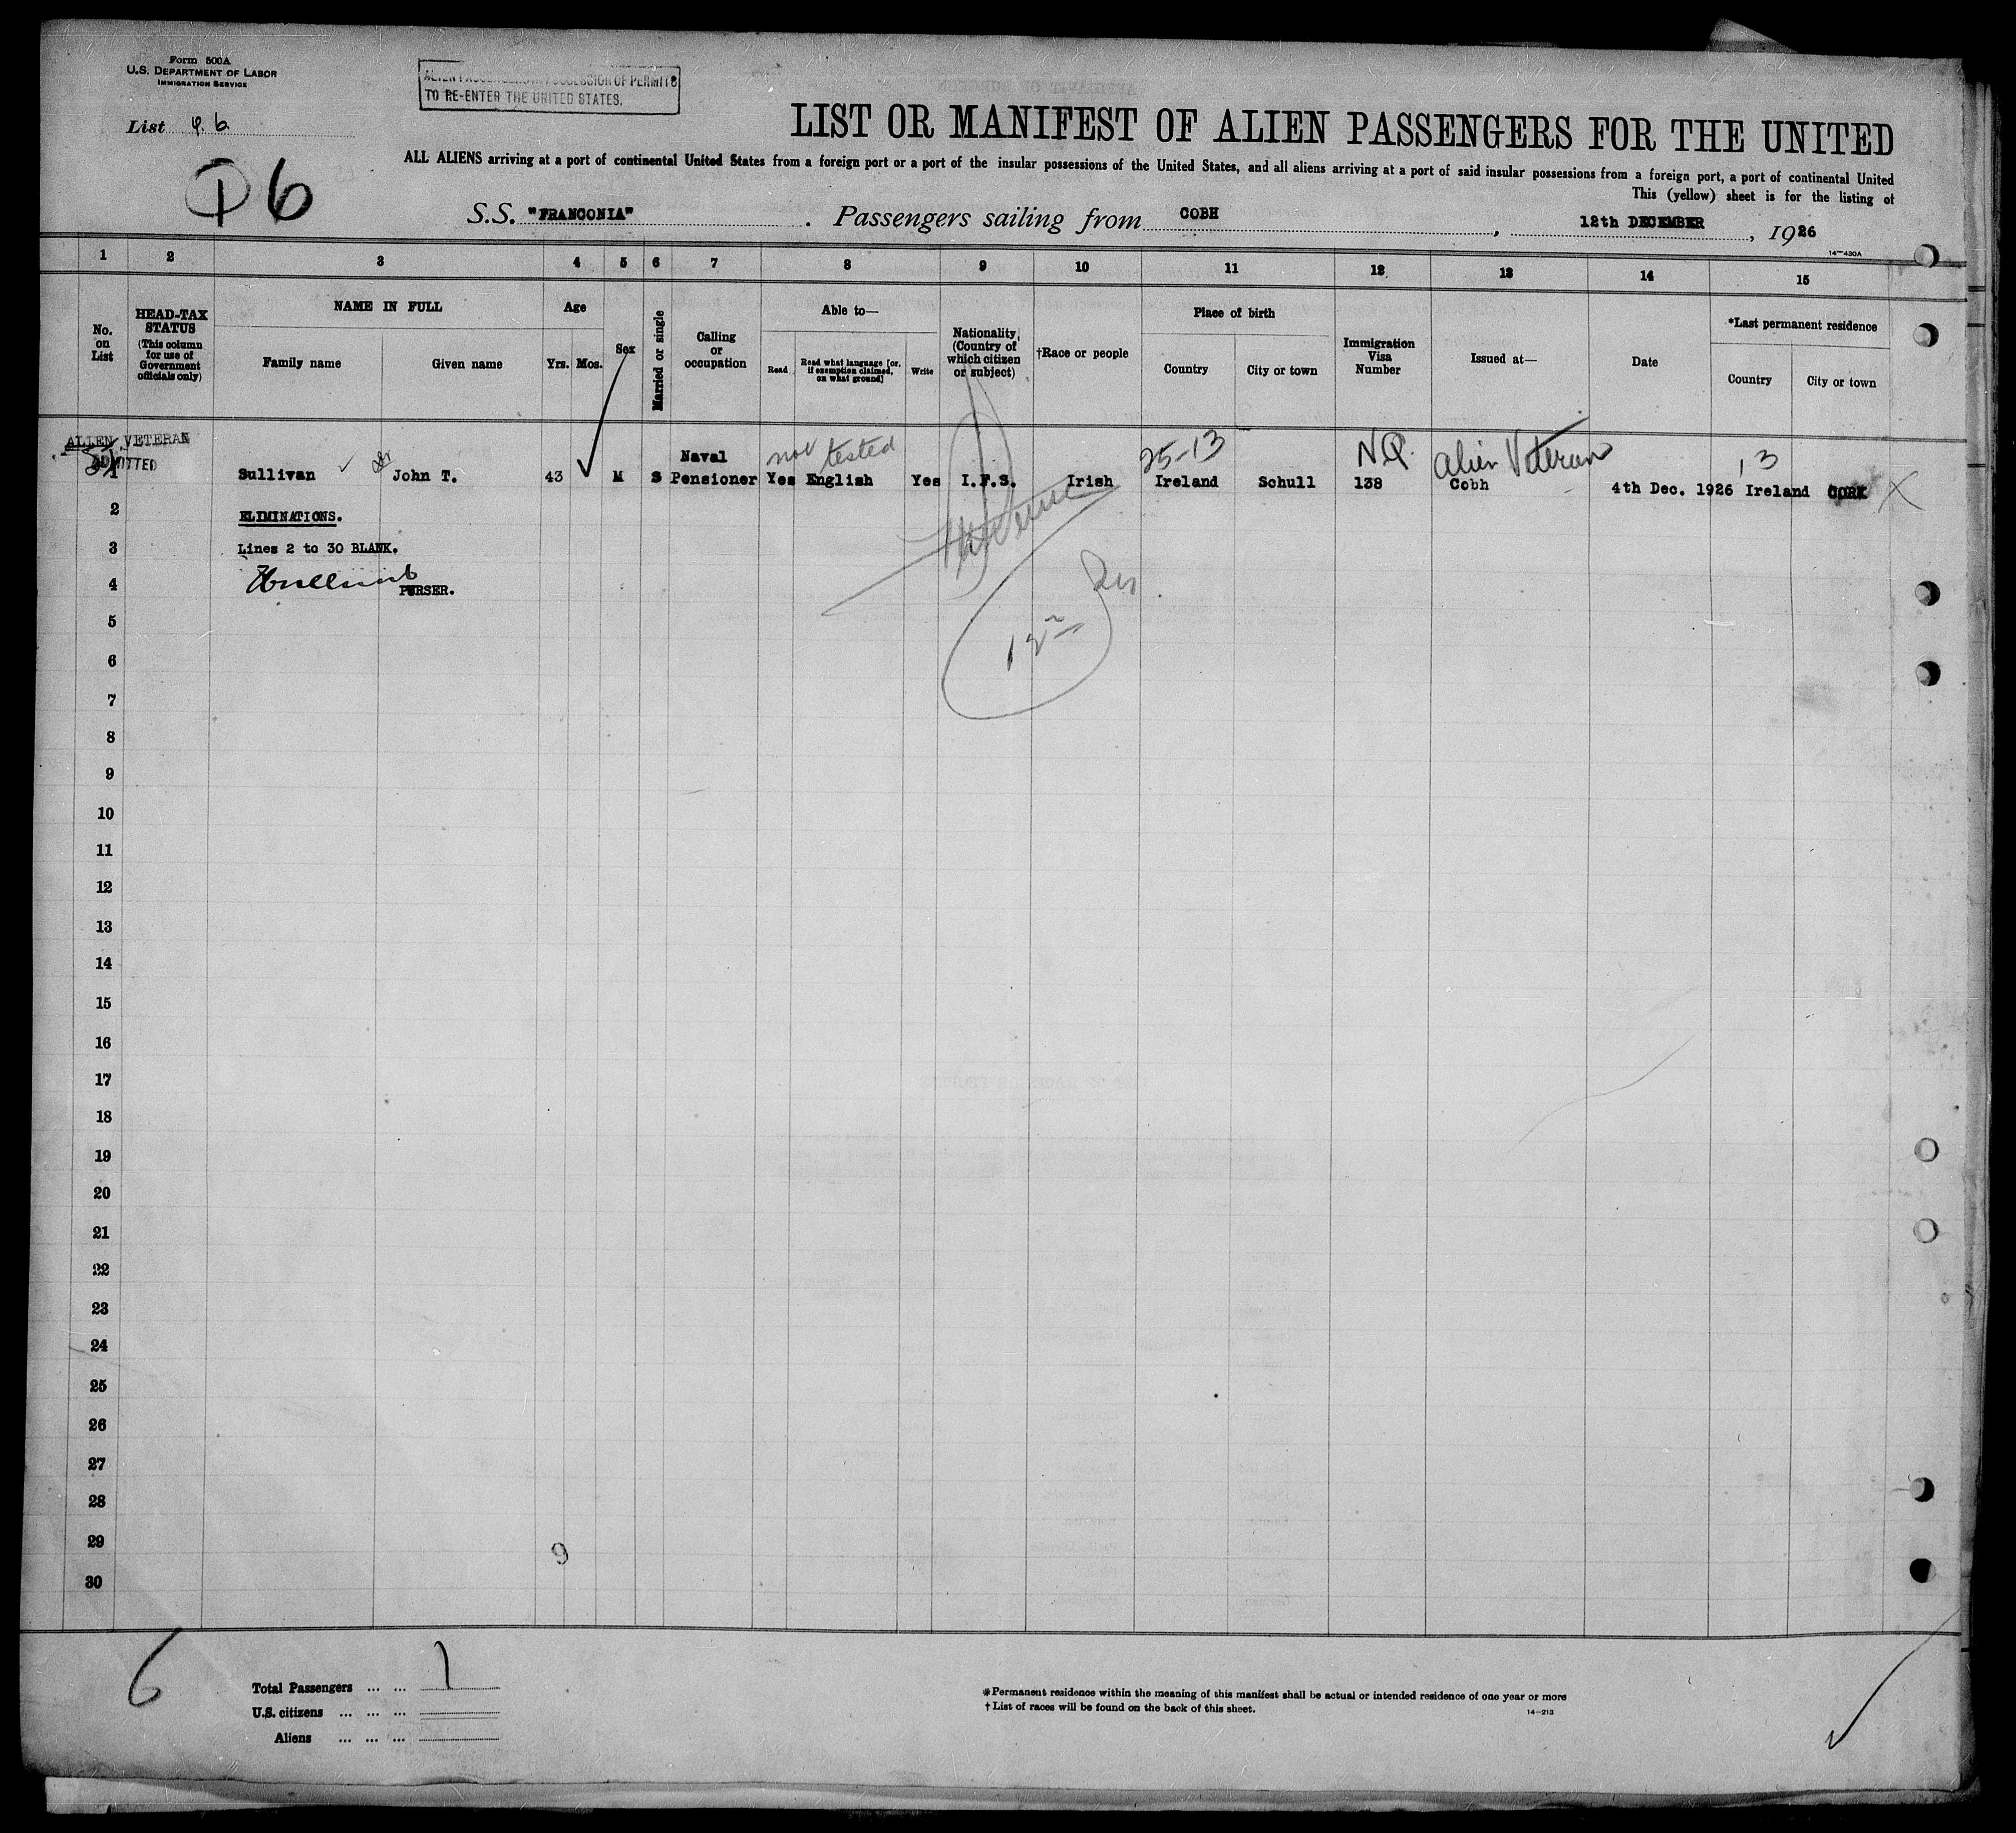 Form 500A
U.S. DEPARTMENT OF LABOR
IMMIGRATION SERVICE
ALIEN PASSENGERS IN POSSESSION OF PERMITS
TO RE-ENTER THE UNITED STATES.
List
6
LIST OR MANIFEST OF ALIEN PASSENGERS FOR THE UNITED
ALL ALIENS arriving at a port of continental United States from a foreign port or a port of the insular possessions of the United States, and all aliens arriving at a port of said insular possessions from a foreign port, a port of continental United
This (yellow) sheet is for the listing of
S.S. "FRANCONIA". Passengers sailing from COBH, 12th DECEMBER, 1926
14—430A
1 2 3 4 5 6 7 8 9 10 11 12 13 14 15
No. on List
HEAD-TAX STATUS (This column for use of Government officials only)
NAME IN FULL
Family name Given name
Age
Yrs. Mos.
Sex
Married or single
Calling or occupation
Able to—
Read
Read what language [or, if exemption claimed, on what ground]
Write
Nationality, (Country of which citizen or subject)
†Race or people
Place of birth
Country City or town
Immigration Visa Number
Issued at—
Date
*Last permanent residence
Country City or town
ALIEN VETERAN
ADMITTED
not tested
25-13
N.Q. Alien Veteran
13
1 Sullivan John T. 43 M S Naval Pensioner Yes English Yes I.F.S. Irish Ireland Schull 138 Cobh 4th Dec. 1926 Ireland CORK X
2 ELIMINATIONS.
3 Lines 2 to 30 BLANK.
4 PURSER.
5
6
7
8
9
10
11
12
13
14
15
16
17
18
19
20
21
22
23
24
25
26
27
28
29
9
30
6
Total Passengers ... ... 1
U.S. citizens ... ... ...
Aliens ... ... ...
*Permanent residence within the meaning of this manifest shall be actual or intended residence of one year or more
†List of races will be found on the back of this sheet.
14—213